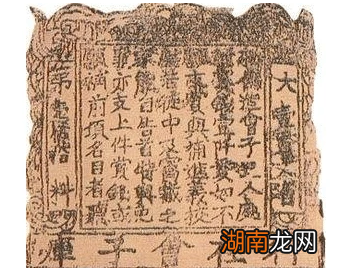 大壹貫文省
偽造會子犯人處
斬賞錢壹阡貫如不
願支賞與補進義校
尉若徒中及窩藏之
家能自告首特與免
罪亦支上件賞錢或
願補前項名目者聽
第壹百拾料
會子庫
湖南龙网